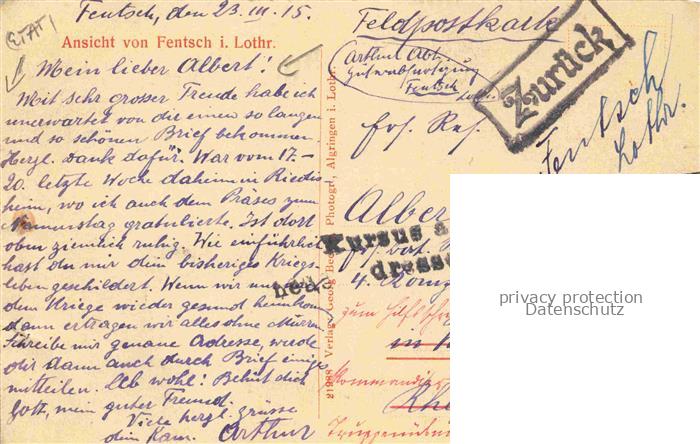 Fentsch, den 23. III. 15.
Ansicht von Fentsch i. Lothr.
Mein lieber Albert!
Mit sehr grosser Freude habe ich
unerwartet von dir einen so langen
und so schönen Brief bekommen.
Herzl. Dank dafür. War vom 17.–
20. letzte Woche daheim in Riedis
heim, wo ich auch dem Präses zum
Namenstag gratulierte. Ist dort
oben ziemlich ruhig. Wie einführlich
hast du mir dein bisheriges Kriegs-
leben geschildert. Wenn wir nur aus
dem Kriege wieder gesund heimkom
dann ertragen wir alles ohne Murren
Schreibe mir genaue Adresse, werde
dir dann auch durch Brief einiges
mitteilen. Leb wohl! Behüt dich
Gott, mein guter Freund.
Viele herzl. Grüsse
dein Kam. Arthur
21988 Verlag Georg Photogr., Algringen i. Lothr.
Feldpostkarte
Arthur Abt.
Güterabfertigung
Fentsch
Zurück
Fentsch
Lothr.
Ers. Res.
Alber
Kursus a
neu dresse
4. König
zum
in
Kommandi
Rhe
Truppenübun
privacy protection
Datenschutz